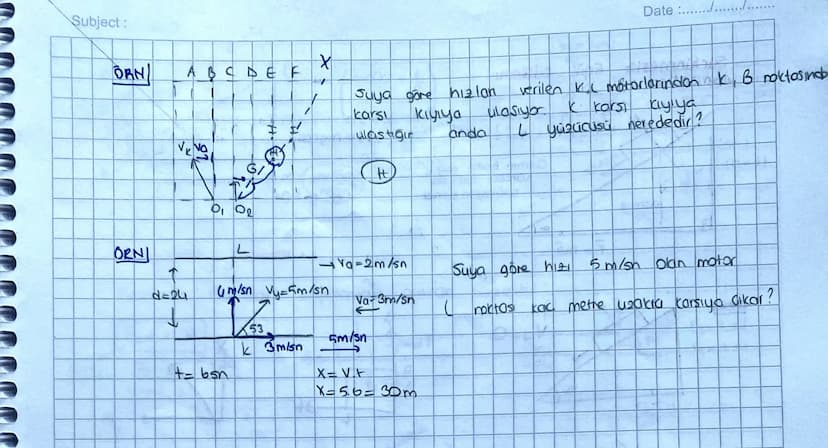 Subject :
Date :....../....../......
ÖRN
A B C D E F X
Suya göre hızları verilen K,L motorlarından K, B noktasında
karşı kıyıya ulaşıyor K karşı kıyıya
ulaştığı anda L yüzücüsü nerededir?
H
I I
H
G
Vk Va
O1 O2
ÖRN
L
→Va=2m/sn
Suya göre hızı 5m/sn olan motor
d=24 4m/sn Vy=5m/sn Va=3m/sn
L noktası kaç metre uzakta karşıya çıkar?
53
K 3m/sn 5m/sn
t= 6sn X=V.t
X=5.6=30m